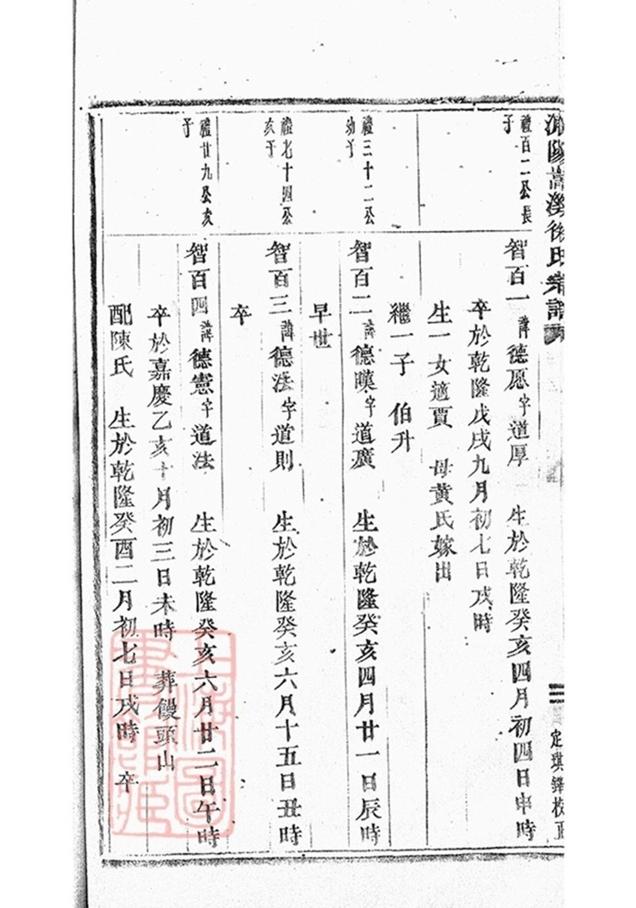 浦陽嵩溪徐氏宗譜
三 定琪鐸校正
禮百二公長子
智百一 諱德愿字道厚 生於乾隆癸亥四月初四日申時
卒於乾隆戊戌九月初七日戌時
生一女適賈 母黃氏嫁出
繼一子 伯升
禮三十二公幼子
智百二 諱德暵字道廣 生於乾隆癸亥四月廿一日辰時
早世
禮七十四公次子
智百三 諱德法字道則 生於乾隆癸亥六月十五日丑時
卒
禮廿九公次子
智百四 諱德憲字道法 生於乾隆癸亥六月廿二日午時
卒於嘉慶乙亥十月初三日未時 葬饅頭山
配陳氏 生於乾隆癸酉二月初七日戌時 卒